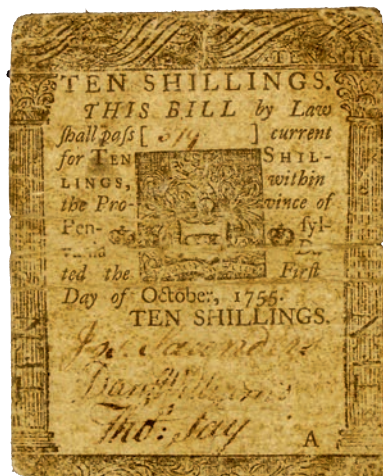 TEN SHILLINGS.
THIS BILL by Law
ſhall paſs [ ] current
for TEN SHIL-
LINGS, within
the Pro- vince of
Pen- ſyl-
ted the Firſt
Day of October, 1755.
TEN SHILLINGS.
Jnº. Saunders
Danˡ. Williams
Thoˢ. Say
A